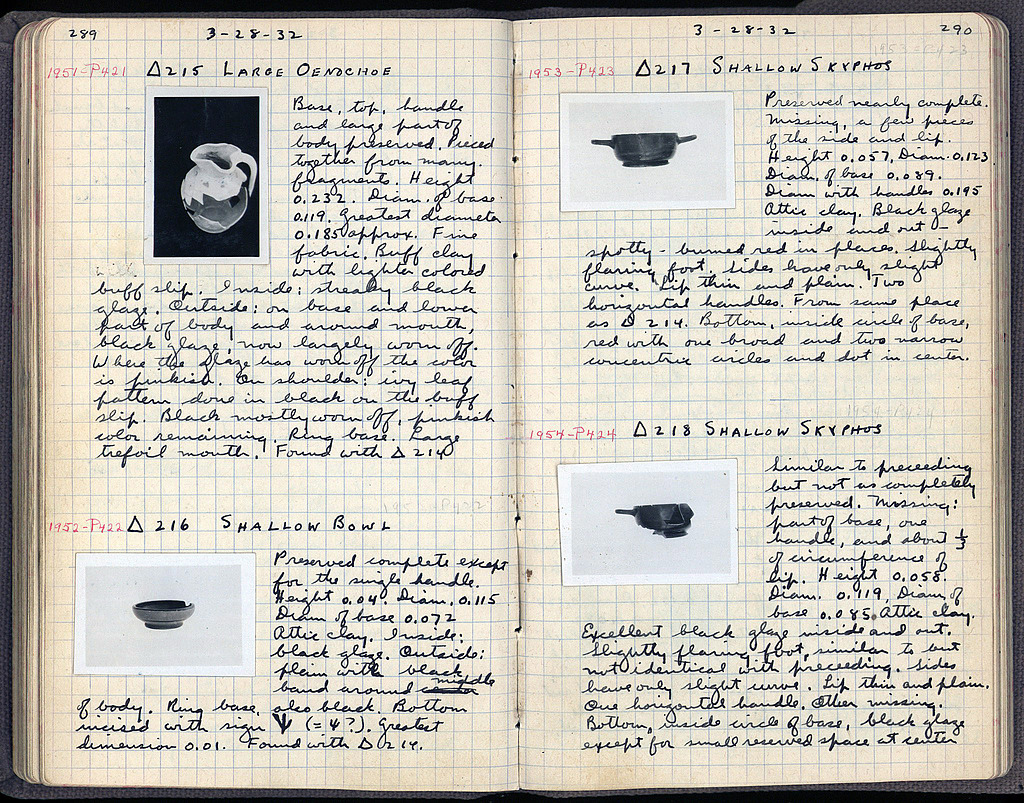 289
3-28-32
1951-P421 Δ215 LARGE OENOCHOE
Base, top, handle
and large part of
body preserved. Pieced
together from many
fragments. Height
0.232. Diam. of base
0.119. Greatest diameter
0.185 approx. Fine
fabric. Buff clay
with lighter colored
buff slip. Inside: streaky black
glaze. Outside: on base and lower
part of body and around mouth,
black glaze, now largely worn off.
Where the glaze has worn off the color
is pinkish. On shoulder: ivy leaf
pattern done in black on the buff
slip. Black mostly worn off, pinkish
color remaining. Ring base. Large
trefoil mouth. Found with Δ 214
1952-P422 Δ 216 SHALLOW BOWL
Preserved complete except
for the single handle.
Height 0.04. Diam. 0.115
Diam of base 0.072
Attic clay. Inside:
black glaze. Outside:
plain with black
band around middle
of body. Ring base, also black. Bottom
incised with sign Ψ (= Ψ?). Greatest
dimension 0.01. Found with Δ 214.
3-28-32
290
1953-P423 Δ217 SHALLOW SKYPHOS
Preserved nearly complete.
Missing, a few pieces
of the side and lip.
Height 0.057, Diam. 0.123
Diam. of base 0.089.
Diam with handles 0.195
Attic clay. Black glaze
inside and out –
spotty - burned red in places. Slightly
flaring foot. Sides have only slight
curve. Lip thin and plain. Two
horizontal handles. From same place
as Δ 214. Bottom, inside circle of base,
red with one broad and two narrow
concentric circles and dot in center.
1954-P424 Δ218 SHALLOW SKYPHOS
Similar to preceeding
but not as completely
preserved. Missing:
part of base, one
handle, and about 1/3
of circumference of
lip. Height 0.058.
Diam. 0.119, Diam, of
base 0.085. Attic clay.
Excellent black glaze inside and out.
Slightly flaring foot, similar to but
not identical with preceeding. Sides
have only slight curve. Lip thin and plain.
One horizontal handle. Other missing.
Bottom, inside circle of base, black glaze
except for small reserved space at center